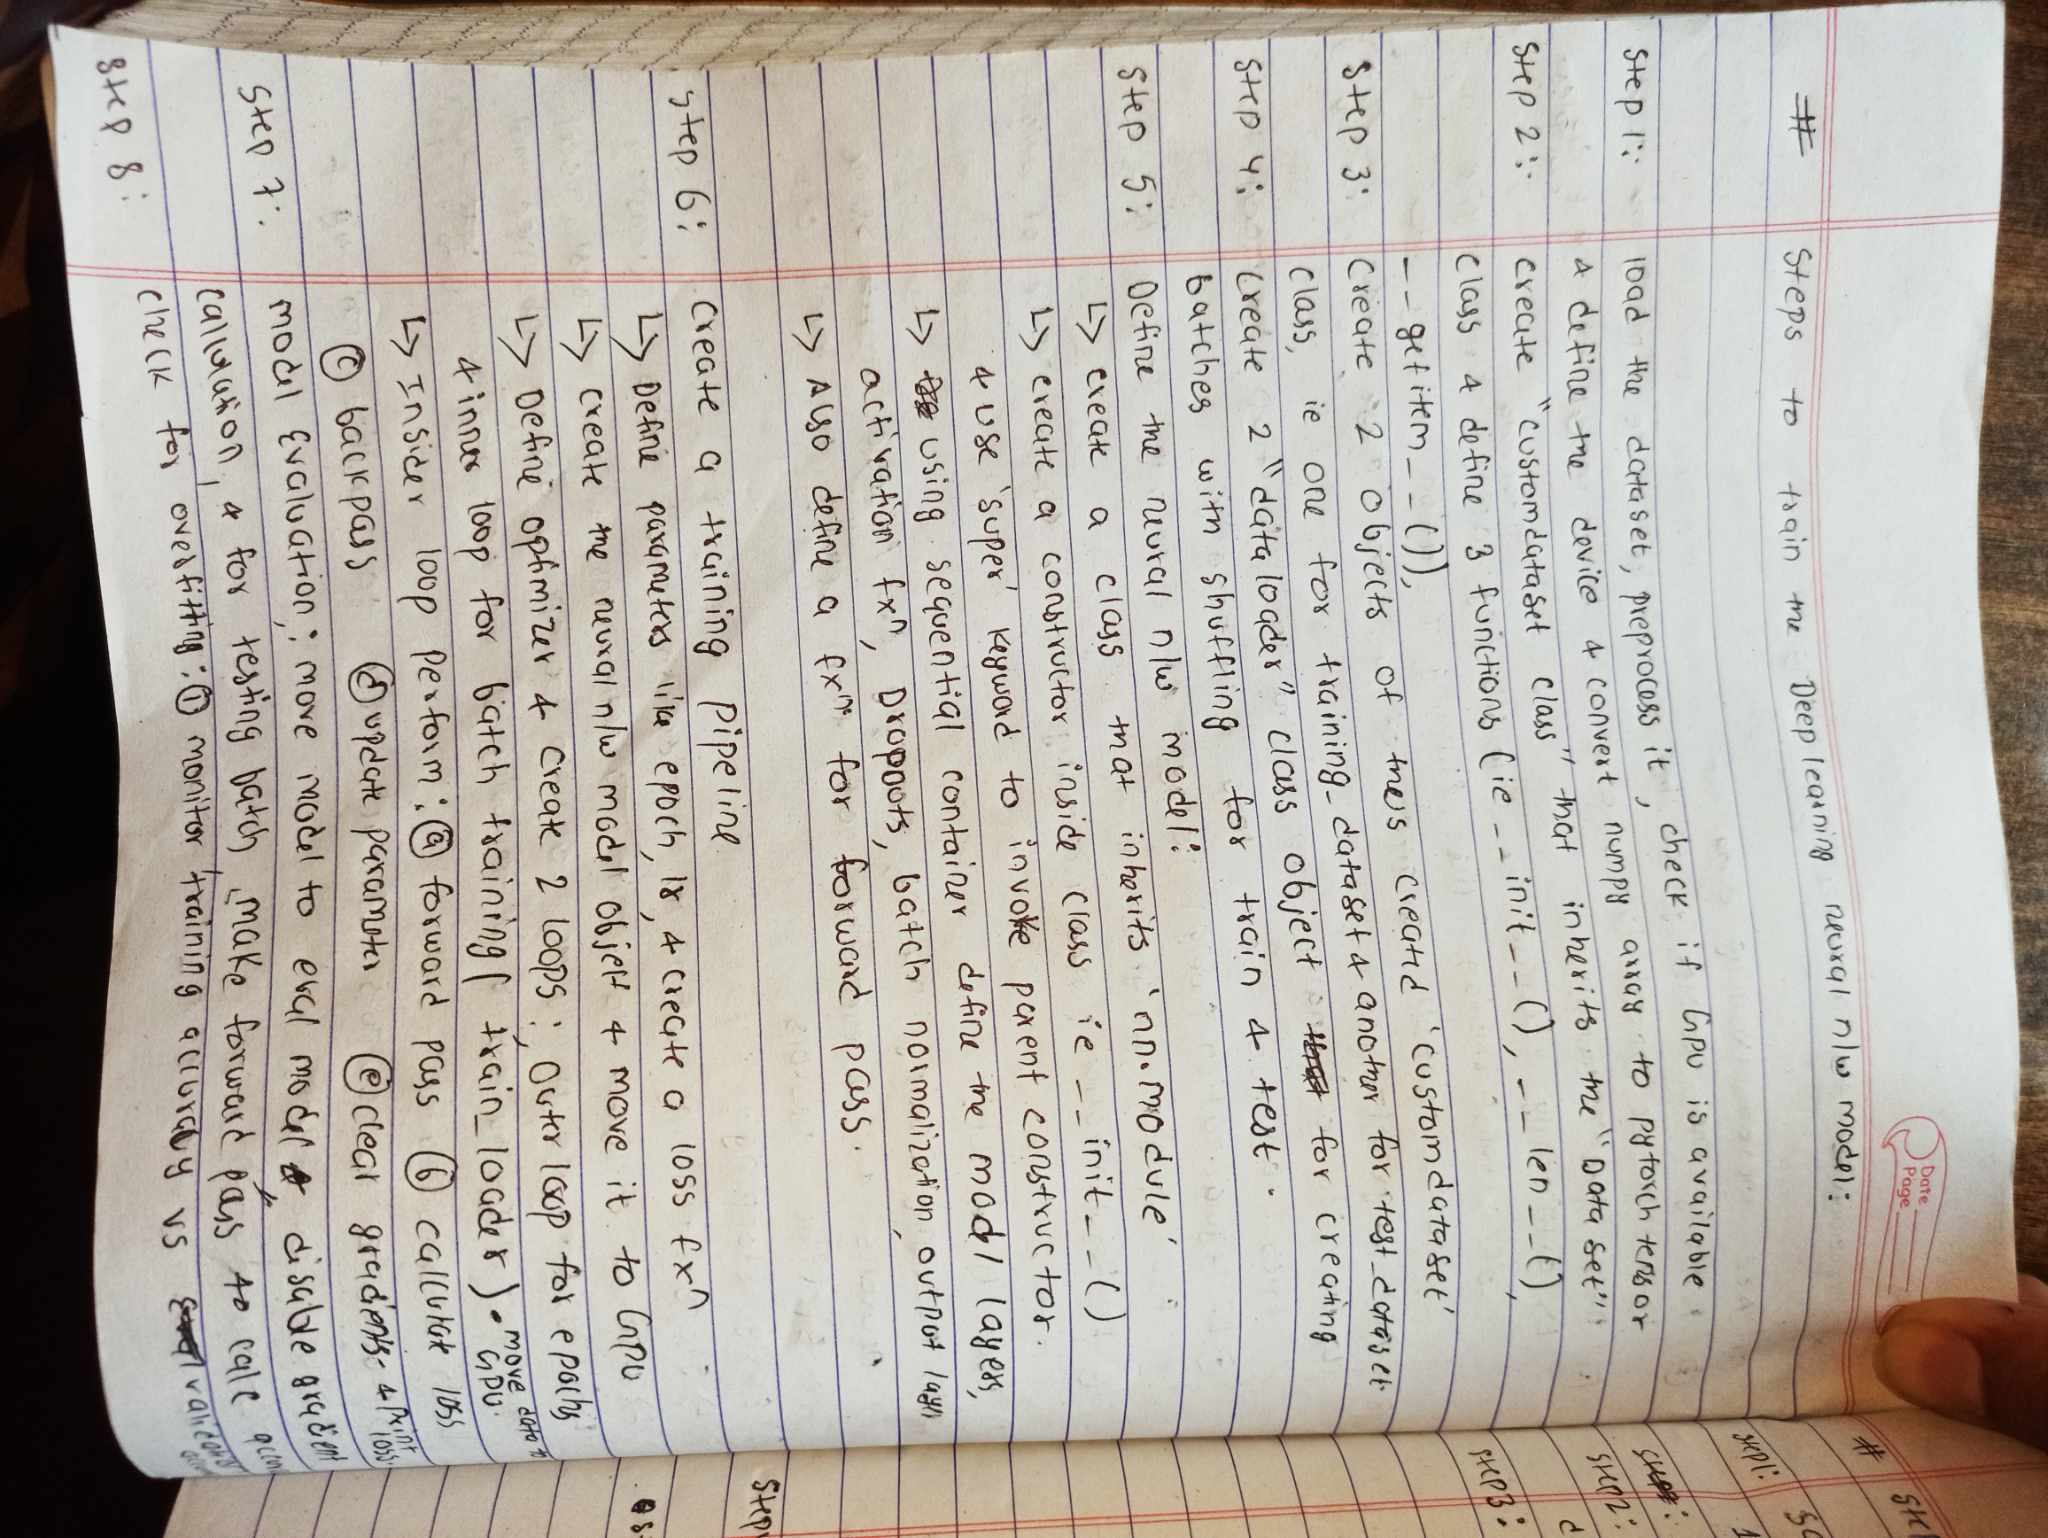 Date
Page
# Steps to train the Deep learning neural n/w model:
Step 1: load the dataset, preprocess it, check if GPU is available
& define the device & convert numpy array to pytorch tensor
Step 2: create "customdataset class" that inherits the "Data set"
class & define 3 functions (ie __init__(), __len__(),
__getitem__()),
Step 3: Create 2 objects of created 'customdataset'
class, ie one for training_dataset & another for test_dataset
Step 4: Create 2 "data loader" class object for creating
batches with shuffling for train & test.
Step 5: Define the neural n/w model:
↳ create a class that inherits 'nn.module'
↳ create a constructor inside class ie __init__()
& use 'super' keyword to invoke parent constructor.
↳ using sequential container define the model layers,
activation fxn, Dropouts, batch normalization, output layer
↳ Also define a fxn for forward pass.
Step 6: Create a training pipeline
↳ Define parameters like epoch, lr, & create a loss fxn
↳ create the neural n/w model objelt & move it to GPU
↳ Define optimizer & Create 2 loops: outer loop for epochs
& inner loop for batch training ( train_loader ) • move data to
GPU.
↳ Insider loop perform: (a) forward pass (b) calculate loss
(c) backpass (d) update parameter (e) clear gradients & print
loss.
Step 7: model Evaluation: move model to eval model, disable gradient
calculation, & for testing batch, make forward pass to calc
Step 8: check for overfitting: (1) monitor training accuracy vs
# Step
Step1:
Step2:
Step3:
Step